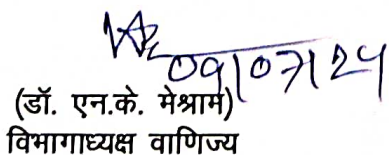 09/07/24
(डॉ. एन.के. मेश्राम)
विभागाध्यक्ष वाणिज्य